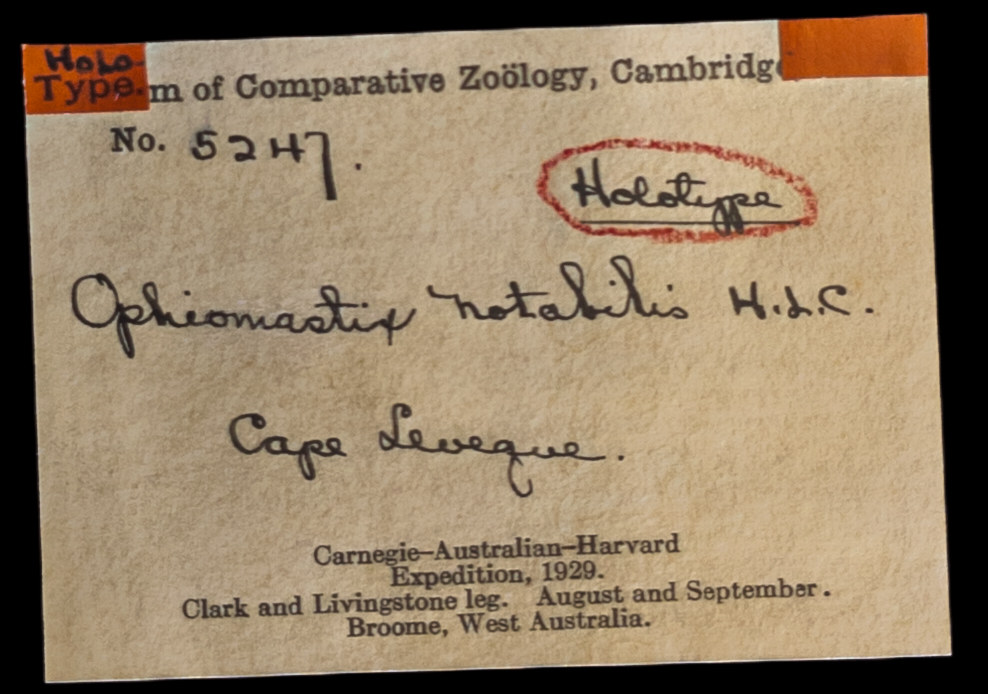 Holo-
Type. m of Comparative Zoölogy, Cambridge
No. 5247.
Holotype
Ophiomastix notabilis H.L.C.
Cape Leveque.
Carnegie–Australian–Harvard
Expedition, 1929.
Clark and Livingstone leg. August and September.
Broome, West Australia.